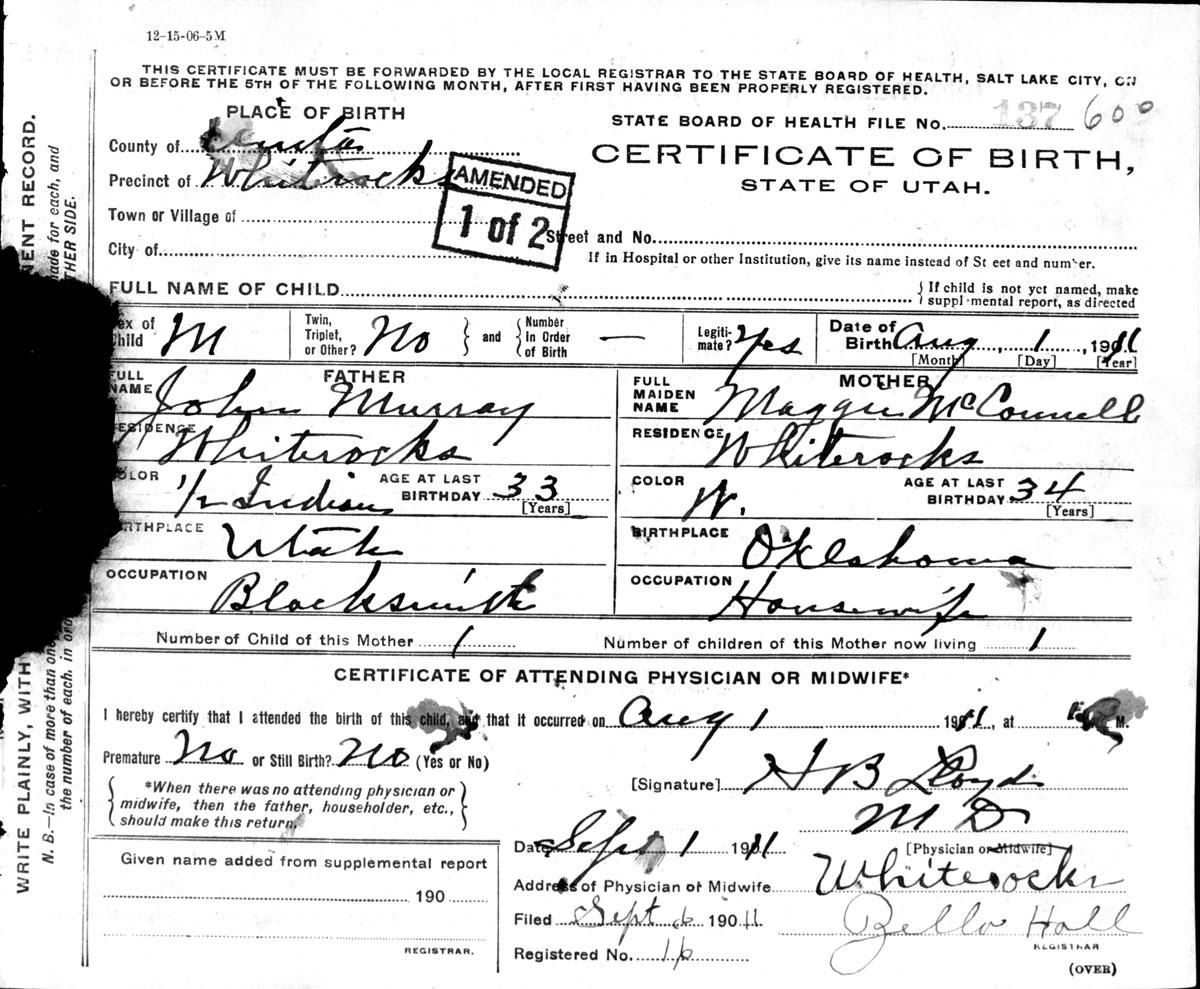 12-15-06-5M
THIS CERTIFICATE MUST BE FORWARDED BY THE LOCAL REGISTRAR TO THE STATE BOARD OF HEALTH, SALT LAKE CITY, ON
OR BEFORE THE 5TH OF THE FOLLOWING MONTH, AFTER FIRST HAVING BEEN PROPERLY REGISTERED.
PLACE OF BIRTH
STATE BOARD OF HEALTH FILE No. 137 600
County of
CERTIFICATE OF BIRTH,
STATE OF UTAH.
Precinct of Whiterocks
AMENDED
1 of 2
Town or Village of
Street and No.
City of
If in Hospital or other Institution, give its name instead of St eet and number.
FULL NAME OF CHILD
If child is not yet named, make
suppl mental report, as directed
ex of
Child M
Twin,
Triplet,
or Other? No
and
Number
in Order
of Birth —
Legiti-
mate? Yes
Date of
Birth Aug, 1, 1911
[Month] [Day] [Year]
FATHER
FULL
NAME John Murray
RESIDENCE Whiterocks
COLOR 1/2 Indian
AGE AT LAST
BIRTHDAY 33
[Years]
BIRTHPLACE Utah
OCCUPATION Blacksmith
MOTHER
FULL
MAIDEN
NAME Maggie McConnell
RESIDENCE Whiterocks
COLOR W.
AGE AT LAST
BIRTHDAY 34
[Years]
BIRTHPLACE Oklahoma
OCCUPATION Housewife
Number of Child of this Mother 1
Number of children of this Mother now living 1
CERTIFICATE OF ATTENDING PHYSICIAN OR MIDWIFE*
I hereby certify that I attended the birth of this child, and that it occurred on Aug 1 1911, at M.
Premature No or Still Birth? No (Yes or No)
*When there was no attending physician or
midwife, then the father, householder, etc.,
should make this return.
[Signature] H B Lloyd
M D
[Physician or Midwife]
Date Sept 1 1911
Address of Physician or Midwife Whiterocks
Filed Sept 6 1911
Bello Hall
REGISTRAR
Registered No. 16
(OVER)
Given name added from supplemental report
190
REGISTRAR.
WRITE PLAINLY, WITH
NENT RECORD.
N. B.—In case of more than one
made for each, and
the number of each, in ord
THER SIDE.